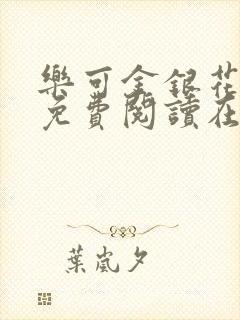 樂可金銀花
免費閱讀在
葉嵐夕